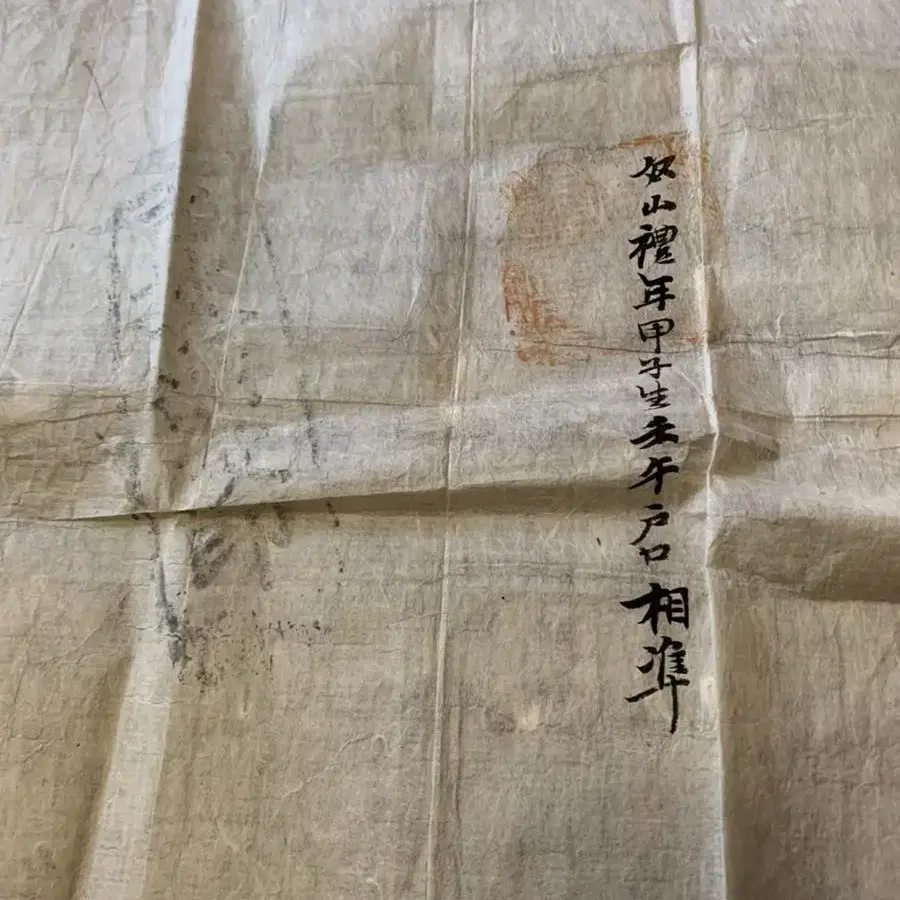 奴山禮年甲子生壬午戶口相準